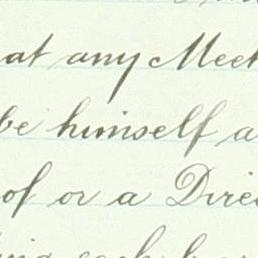 at any Meet
be himself a
of or a Dire
each